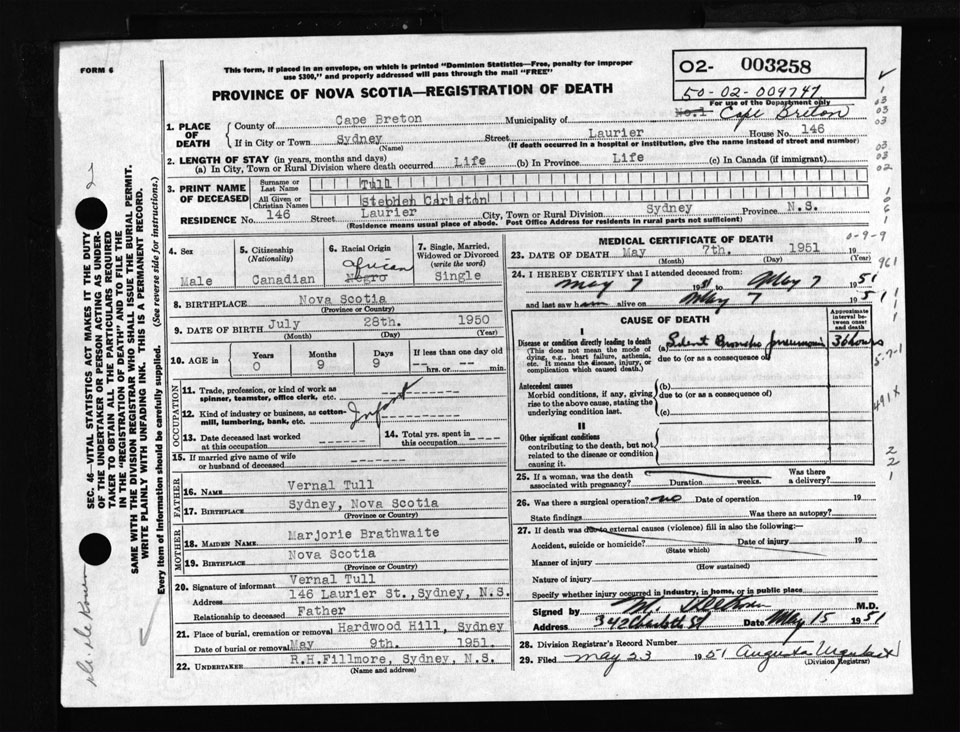 FORM 6
This form, if placed in an envelope, on which is printed "Dominion Statistics—Free, penalty for improper
use $300," and properly addressed will pass through the mail "FREE"
PROVINCE OF NOVA SCOTIA—REGISTRATION OF DEATH
02- 003258
50-02-009747
For use of the Department only
No.1 Cape Breton
1. PLACE OF DEATH
County of Cape Breton Municipality of
If in City or Town Sydney Street Laurier House No. 146
(Name) (If death occurred in a hospital or institution, give the name instead of street and number)
2. LENGTH OF STAY (in years, months and days)
(a) In City, Town or Rural Division where death occurred Life (b) In Province Life (c) In Canada (if immigrant)
3. PRINT NAME OF DECEASED
Surname or Last Name Tull
All Given or Christian Names Stephen Carleton
RESIDENCE No. 146 Street Laurier City, Town or Rural Division Sydney Province N.S.
(Residence means usual place of abode. Post Office Address for residents in rural parts not sufficient)
4. Sex
Male
5. Citizenship (Nationality)
Canadian
6. Racial Origin
African
Negro
7. Single, Married, Widowed or Divorced (write the word)
Single
8. BIRTHPLACE Nova Scotia
(Province or Country)
9. DATE OF BIRTH July 28th. 1950
(Month) (Day) (Year)
10. AGE in Years Months Days If less than one day old
0 9 9 hrs. or min.
OCCUPATION
11. Trade, profession, or kind of work as spinner, teamster, office clerk, etc.
12. Kind of industry or business, as cotton-mill, lumbering, bank, etc.
Infant
13. Date deceased last worked at this occupation
14. Total yrs. spent in this occupation
15. If married give name of wife or husband of deceased
FATHER
16. NAME Vernal Tull
17. BIRTHPLACE Sydney, Nova Scotia
(Province or Country)
MOTHER
18. MAIDEN NAME Marjorie Brathwaite
19. BIRTHPLACE Nova Scotia
(Province or Country)
20. Signature of informant Vernal Tull
Address 146 Laurier St., Sydney, N.S.
Relationship to deceased Father
21. Place of burial, cremation or removal Hardwood Hill, Sydney
Date of burial or removal May 9th. 1951.
22. UNDERTAKER R.H.Fillmore, Sydney, N.S.
(Name and address)
MEDICAL CERTIFICATE OF DEATH
23. DATE OF DEATH May 7th. 1951 19
(Month) (Day) (Year)
24. I HEREBY CERTIFY that I attended deceased from:
May 7 1951 to May 7 1951
and last saw him alive on May 7 1951
CAUSE OF DEATH
Approximate interval between onset and death
I
Disease or condition directly leading to death
(This does not mean the mode of dying, e.g., heart failure, asthenia, etc. It means the disease, injury, or complication which caused death.)
(a) Broncho pneumonia 36 hours
due to (or as a consequence of
Antecedent causes
Morbid conditions, if any, giving rise to the above cause, stating the underlying condition last.
(b)
due to (or as a consequence of)
(c)
II
Other significant conditions
contributing to the death, but not related to the disease or condition causing it.
25. If a woman, was the death associated with pregnancy? Duration weeks. Was there a delivery?
26. Was there a surgical operation? no Date of operation 19
State findings Was there an autopsy?
27. If death was due to external causes (violence) fill in also the following:—
Accident, suicide or homicide? Date of injury 19
(State which)
Manner of injury
(How sustained)
Nature of injury
Specify whether injury occurred in industry, in home, or in public place
Signed by M. M.D.
Address 342 Charlotte St Date May 15 1951
28. Division Registrar's Record Number
29. Filed May 23 1951 Augusta Urquhart
(Division Registrar)
SEC. 46—VITAL STATISTICS ACT MAKES IT THE DUTY
OF THE UNDERTAKER OR PERSON ACTING AS UNDER-
TAKER TO OBTAIN ALL THE PARTICULARS REQUIRED
IN THE "REGISTRATION OF DEATH" AND TO FILE THE
SAME WITH THE DIVISION REGISTRAR WHO SHALL ISSUE THE BURIAL PERMIT.
WRITE PLAINLY WITH UNFADING INK. THIS IS A PERMANENT RECORD.
Every item of Information should be carefully supplied. (See reverse side for instructions.)
03
03
03
03
03
02
0-9-9
961
5-7-1
491X
2
2
1